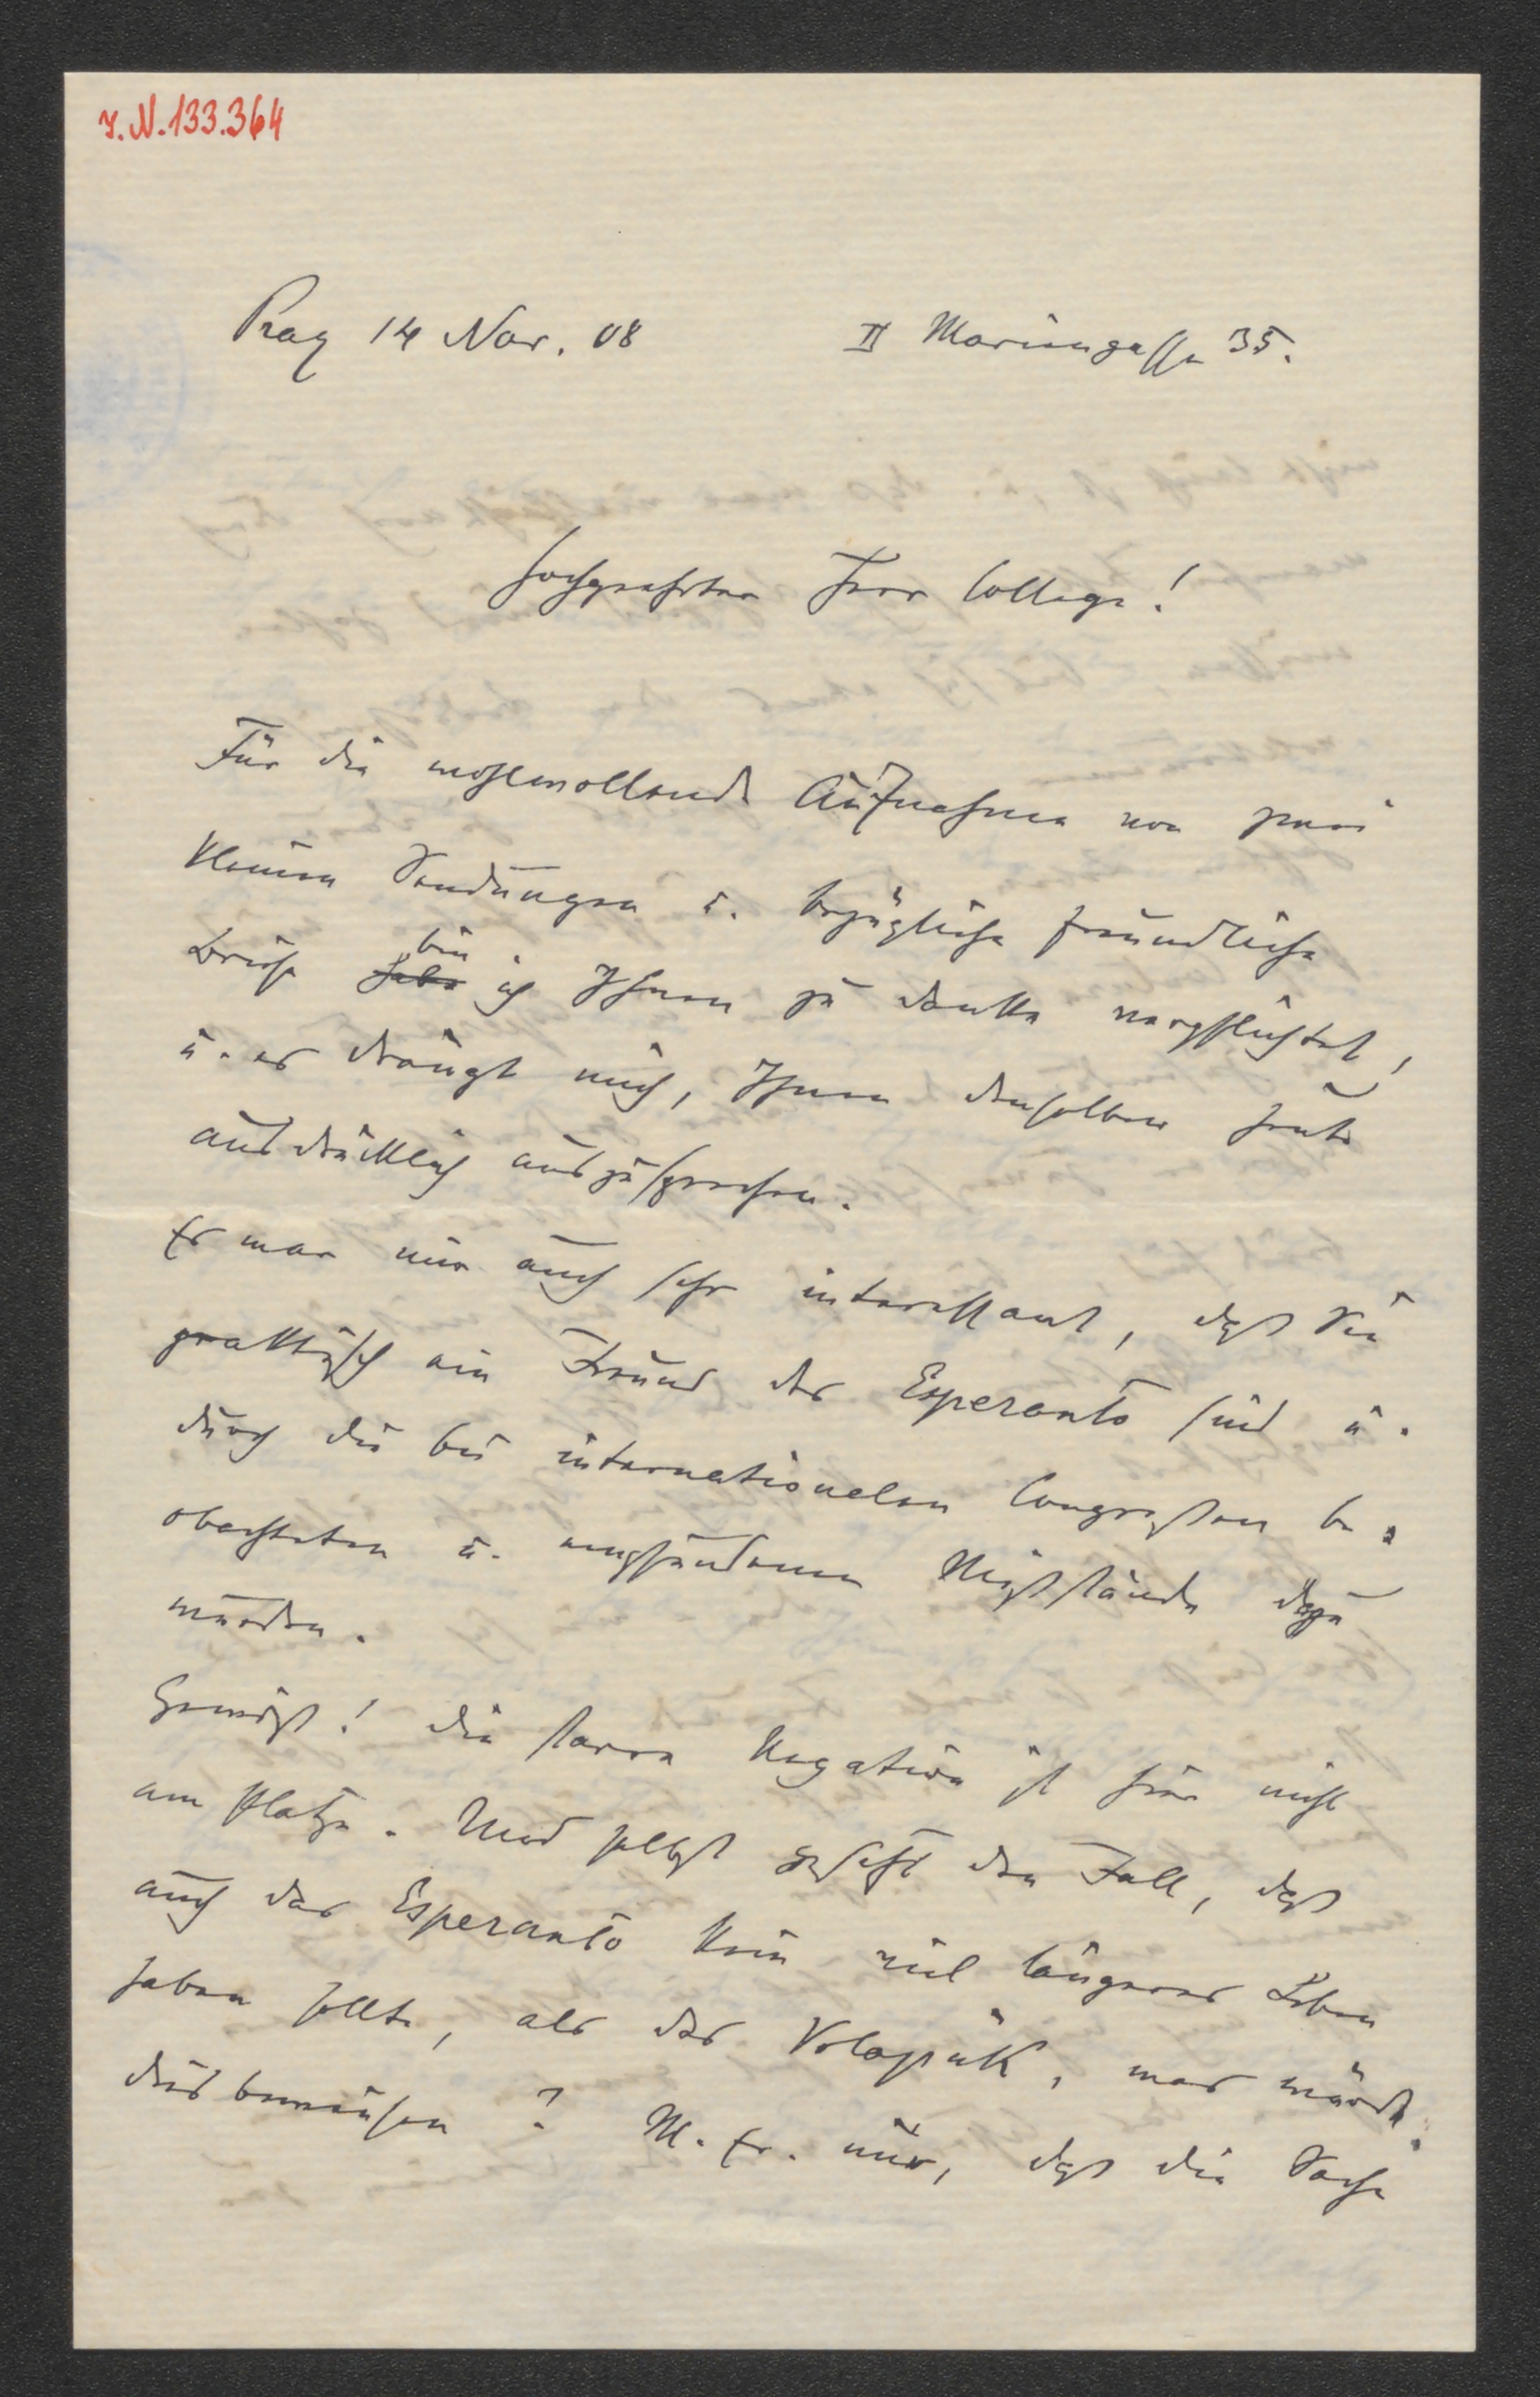 I.N.133.364
Prag 14 Nov. 08 II Mariengasse 35.
Hochgeehrter Herr College!
Für die wohlwollende Aufnahme von zwei
kleinen Sendungen u. bezügliche freundliche
Briefe habe bin ich Ihnen zu Danke verpflichtet,
u. es drängt mich, Ihnen denselben heute
ausdrücklich auszusprechen.
Es war mir auch sehr interessant, daß Sie
praktisch ein Freund des Esperanto sind u.
durch die bei internationalen Congressen be-
obachteten u. empfundenen Mißstände dazu
wurden.
Gewiß! Die starre Negation ist hier nicht
am Platze. Und selbst gesetzt den Fall, daß
auch das Esperanto kein viel längeres Leben
haben sollte, als das Volapük, was würde
dies beweisen? M. Er. nur, daß die Sache